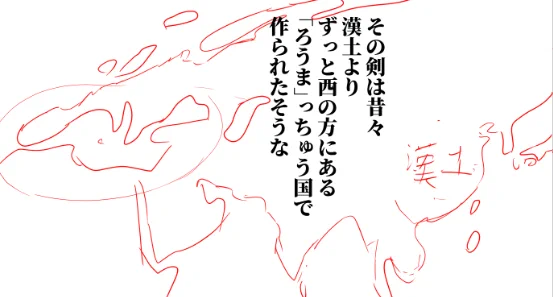 その剣は昔々
漢土より
ずっと西の方にある
「ろうま」っちゅう国で
作られたそうな
漢土